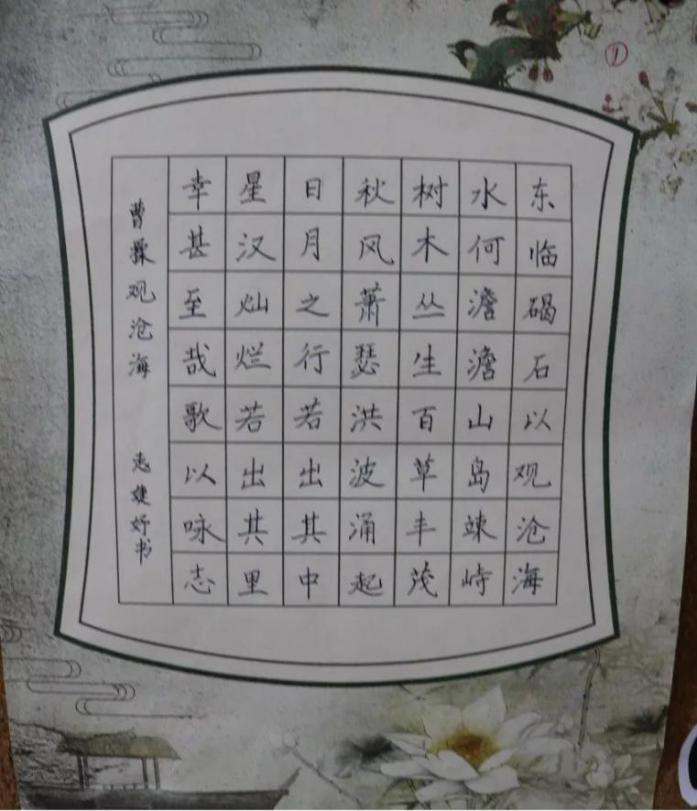 东临碣石以观沧海
水何澹澹山岛竦峙
树木丛生百草丰茂
秋风萧瑟洪波涌起
日月之行若出其中
星汉灿烂若出其里
幸甚至哉歌以咏志
曹操观沧海 婕妤书